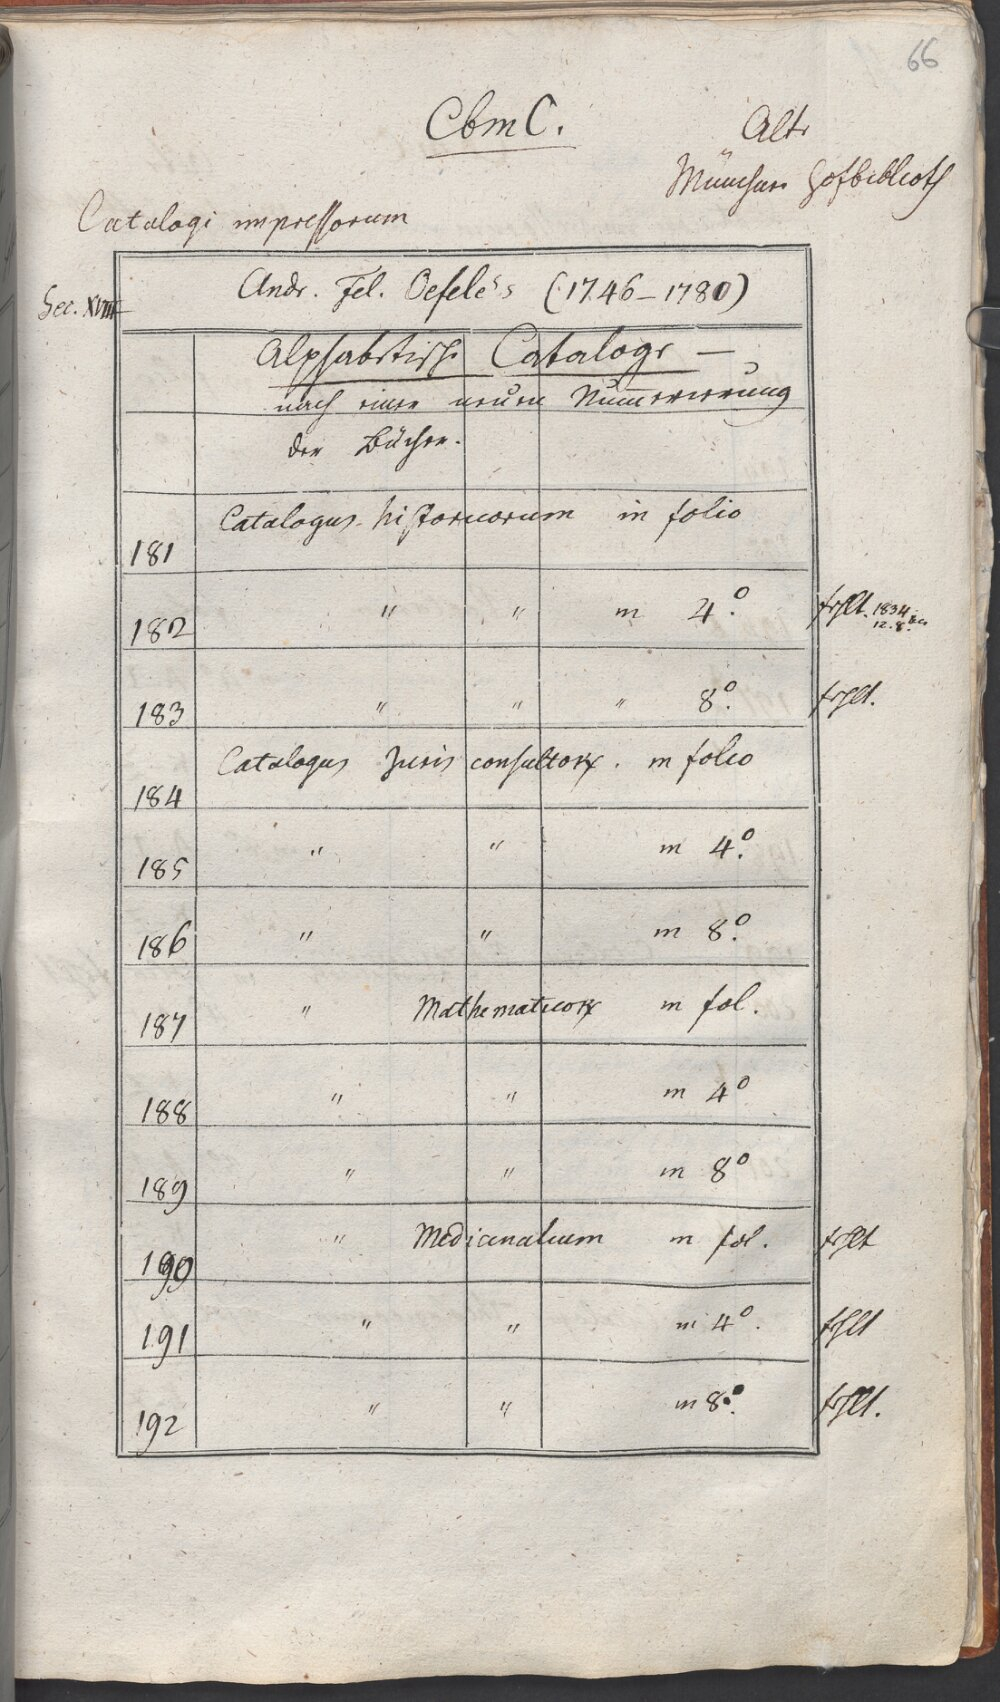 66
Cbm C.
Alte
Münchner Hofbiblioth
Catalogi impressorum
Sec. XVIII
Andr. Fel. Oefele's (1746-1780)
Alphabetische Cataloge —
nach einer neuen Nummerierung
der Bücher.
181 Catalogus historicorum in folio
182 " " in 4º. fehlt. 1834 12.8.
183 " " " 8º. fehlt.
184 Catalogus Juris consultorꝝ. in folio
185 " " in 4º.
186 " " in 8º.
187 " Mathematicorꝝ in fol.
188 " " in 4º
189 " " in 8º
190 " Medicinalium in fol. fehlt
191 " " in 4º. fehlt
192 " " in 8º. fehlt.